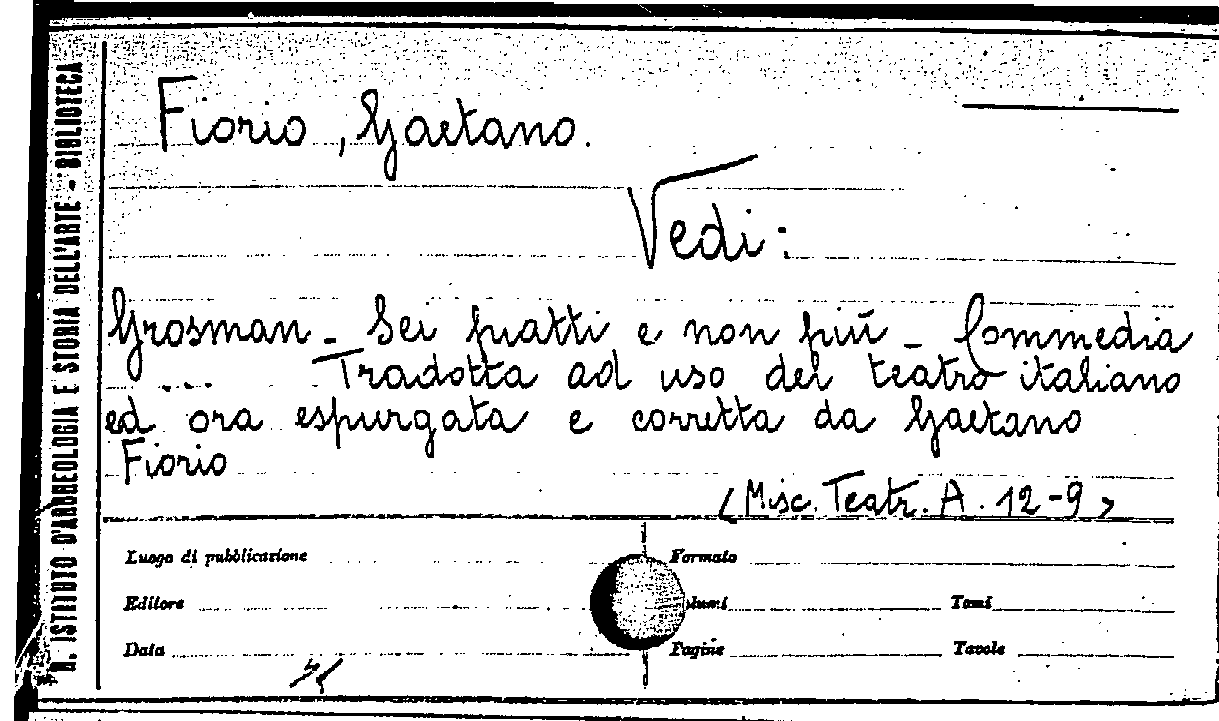 R. ISTITUTO D'ARCHEOLOGIA E STORIA DELL'ARTE - BIBLIOTECA
Fiorio, Gaetano.
Vedi:
Grosman - Sei piatti e non più - Commedia
.... Tradotta ad uso del teatro italiano
ed ora espurgata e corretta da Gaetano
Fiorio
(Misc. Teatr. A. 12-9)
Luogo di pubblicazione
Formato
Editore
Tomi
Data
Pagine
Tavole